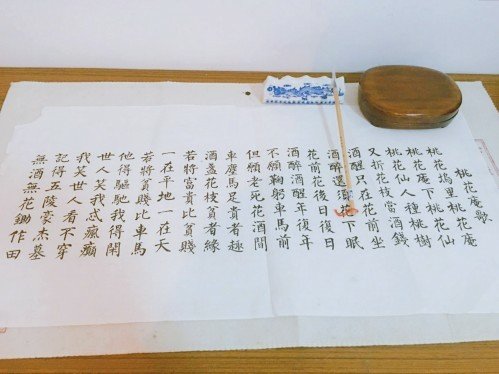 桃花庵歌
桃花塢里桃花庵
桃花庵下桃花仙
桃花仙人種桃樹
又折花枝當酒錢
酒醒只在花前坐
酒醉還須花下眠
花前花後日復日
酒醉酒醒年復年
不願鞠躬車馬前
但願老死花酒間
車塵馬足貴者趣
酒盞花枝貧者緣
若將富貴比貧賤
一在平地一在天
若將貧賤比車馬
他得驅馳我得閑
世人笑我忒瘋癲
我笑世人看不穿
記得五陵豪杰墓
無酒無花鋤作田